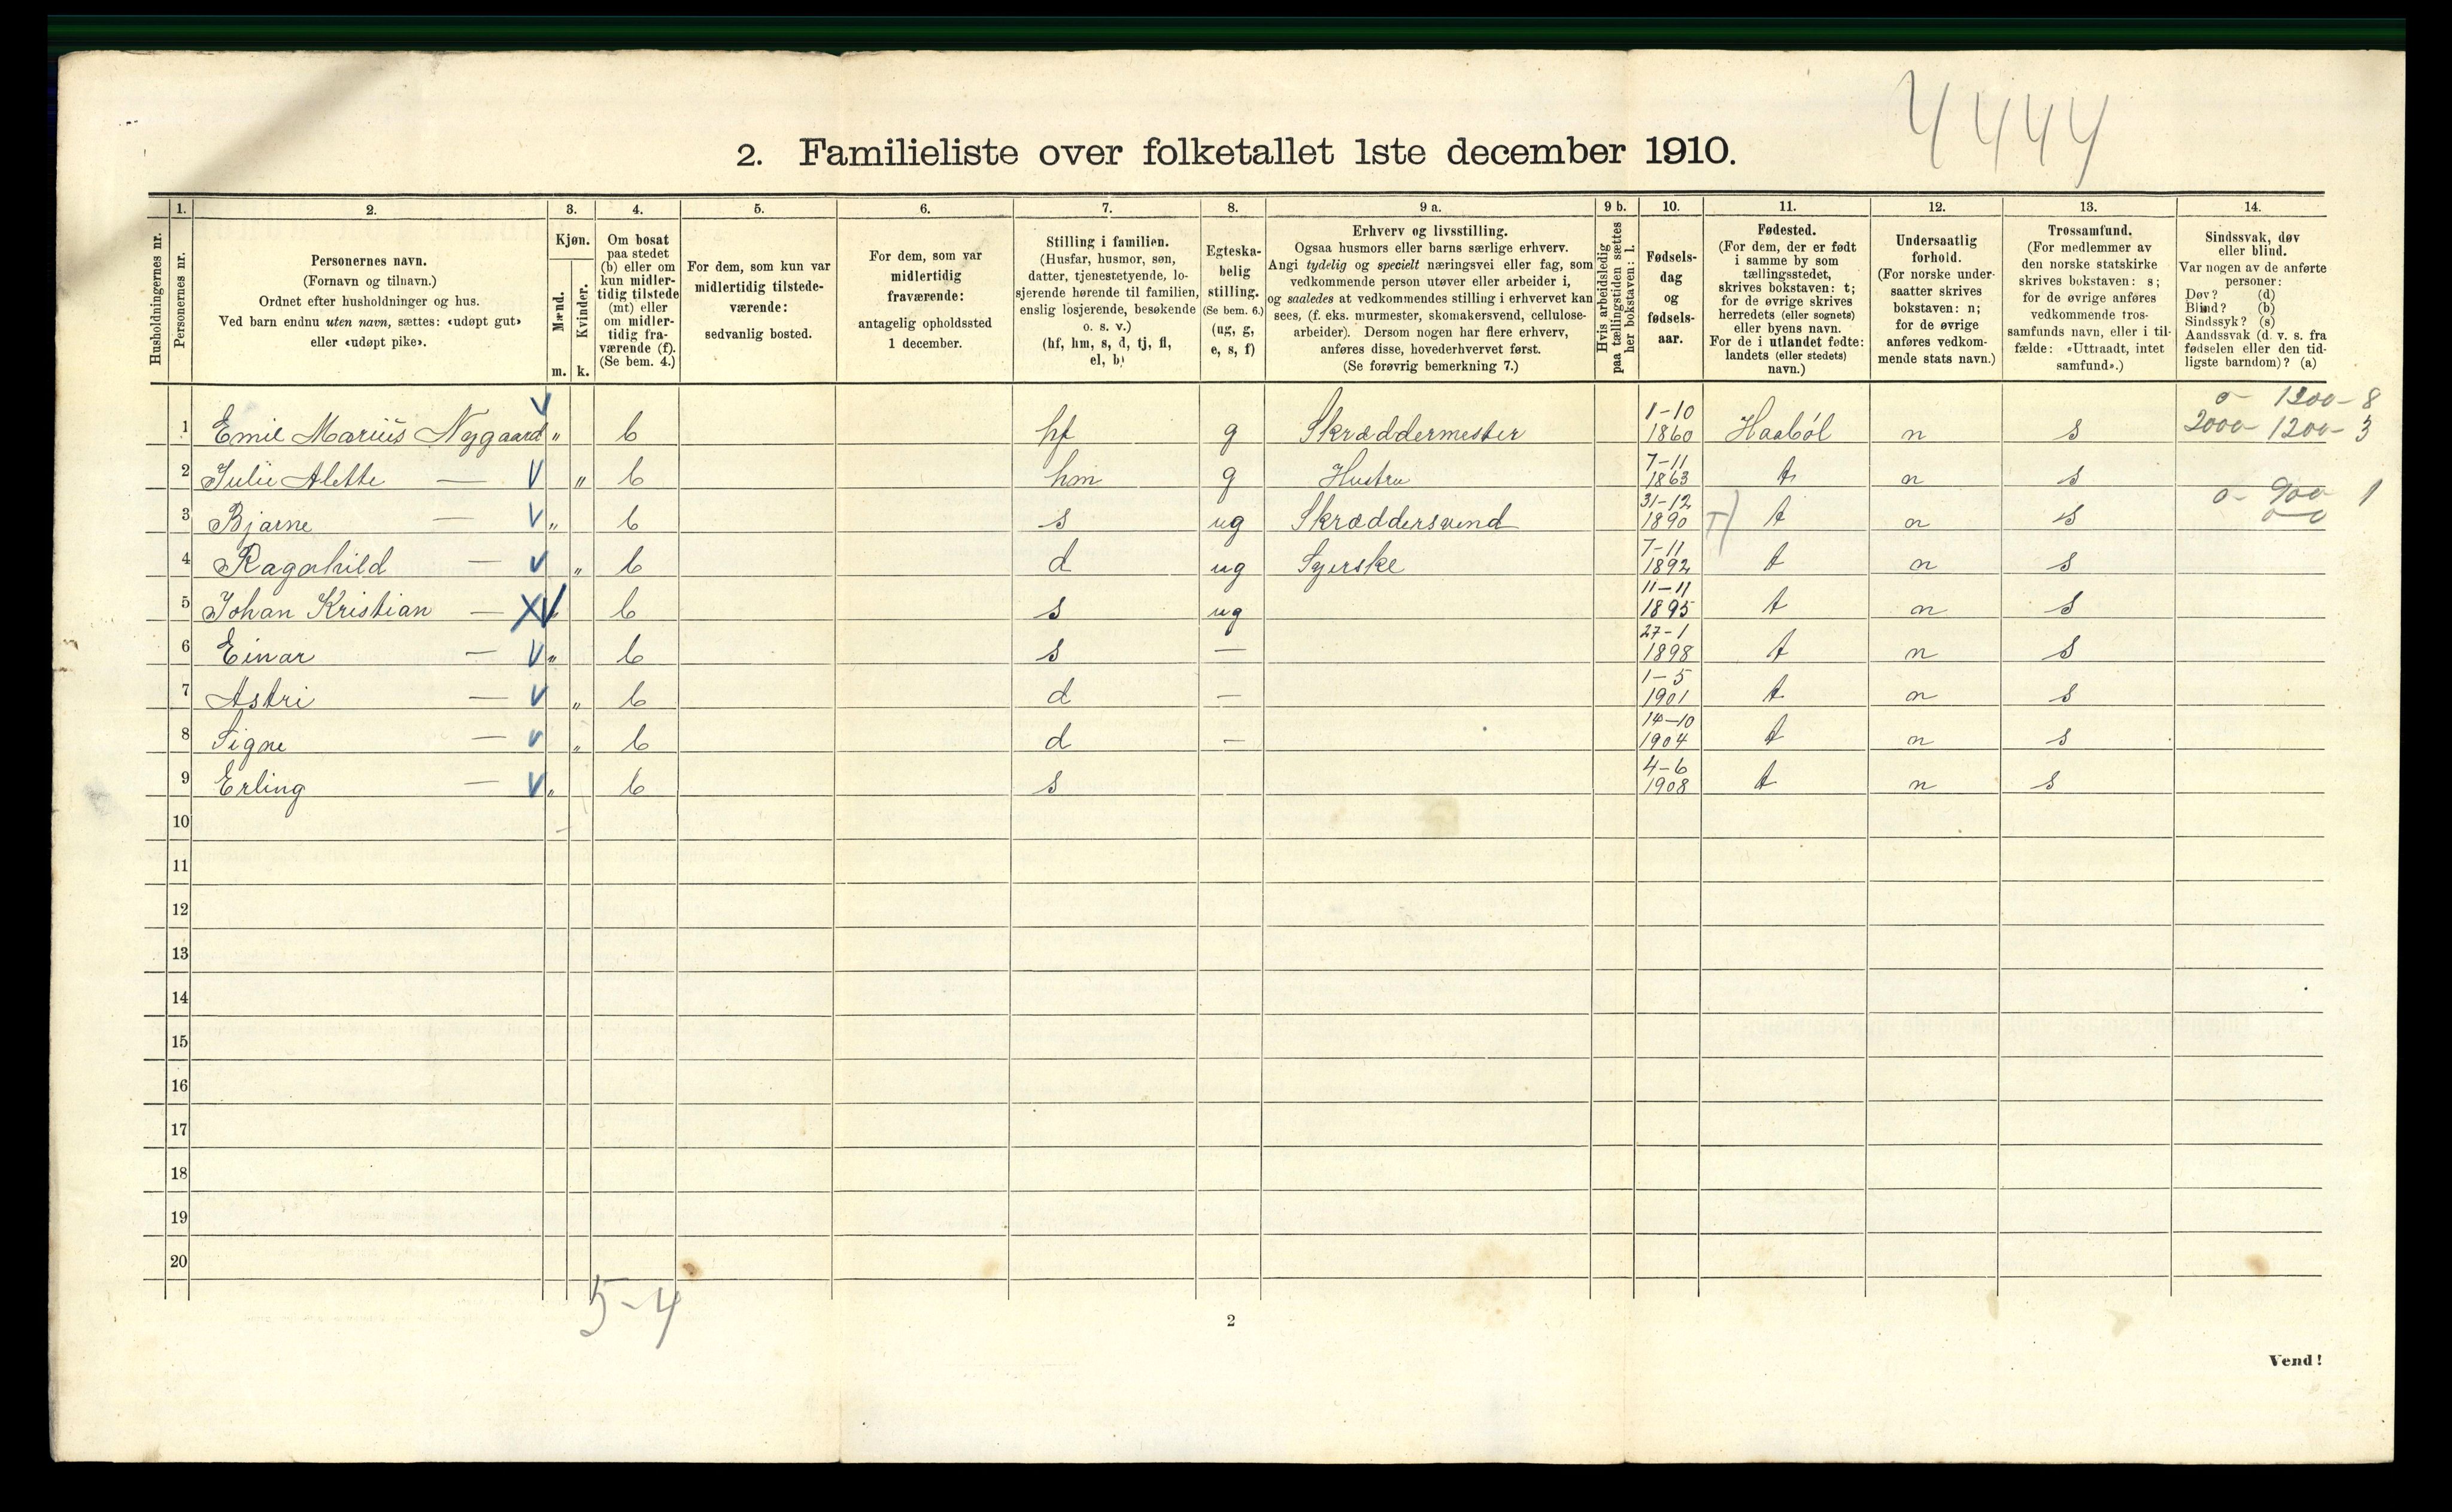 4444
2. Familieliste over folketallet 1ste december 1910.
Husholdningernes nr.
1. Personernes nr.
2. Personernes navn.
(Fornavn og tilnavn.)
Ordnet efter husholdninger og hus.
Ved barn endnu uten navn, sættes: «udøpt gut»
eller «udøpt pike».
3. Kjøn.
Mænd. m.
Kvinder. k.
4. Om bosat
paa stedet
(b) eller om
kun midler-
tidig tilstede
(mt) eller
om midler-
tidig fra-
værende (f).
(Se bem. 4.)
5. For dem, som kun var
midlertidig tilstede-
værende:
sedvanlig bosted.
6. For dem, som var
midlertidig
fraværende:
antagelig opholdssted
1 december.
7. Stilling i familien.
(Husfar, husmor, søn,
datter, tjenestetyende, lo-
sjerende hørende til familien,
enslig losjerende, besøkende
o. s. v.)
(hf, hm, s, d, tj, fl,
el, b)
8. Egteska-
belig
stilling.
(Se bem. 6.)
(ug, g,
e, s, f)
9 a. Erhverv og livsstilling.
Ogsaa husmors eller barns særlige erhverv.
Angi tydelig og specielt næringsvei eller fag, som
vedkommende person utøver eller arbeider i,
og saaledes at vedkommendes stilling i erhvervet kan
sees, (f. eks. murmester, skomakersvend, cellulose-
arbeider). Dersom nogen har flere erhverv,
anføres disse, hovederhvervet først.
(Se forøvrig bemerkning 7.)
9 b. Hvis arbeidsledig
paa tællingstiden sættes
her bokstaven: l.
10. Fødsels-
dag
og
fødsels-
aar.
11. Fødested.
(For dem, der er født
i samme by som
tællingsstedet,
skrives bokstaven: t;
for de øvrige skrives
herredets (eller sognets)
eller byens navn.
For de i utlandet fødte:
landets (eller stedets)
navn.)
12. Undersaatlig
forhold.
(For norske under-
saatter skrives
bokstaven: n;
for de øvrige
anføres vedkom-
mende stats navn.)
13. Trossamfund.
(For medlemmer av
den norske statskirke
skrives bokstaven: s;
for de øvrige anføres
vedkommende tros-
samfunds navn, eller i til-
fælde: «Uttraadt, intet
samfund».)
14. Sindssvak, døv
eller blind.
Var nogen av de anførte
personer:
Døv? (d)
Blind? (b)
Sindssyk? (s)
Aandssvak (d. v. s. fra
fødselen eller den tid-
ligste barndom)? (a)
o- 1200- 8
1 Emil Marius Nygaard " b hf g Skræddermester 1-10 1860 Haabøl n s 2000- 1200- 3
2 Julie Alette — " b hm g Hustru 7-11 1863 t n s
3 Bjarne — " b s ug Skræddersvend 31-12 1890 t n s o- 900- 1
4 Ragnhild — " b d ug Syerske 7-11 1892 t n s
5 Johan Kristian — b s ug 11-11 1895 t n s
6 Einar — " b s — 27-1 1898 t n s
7 Astri — " b d — 1-5 1901 t n s
8 Signe — " b d — 14-10 1904 t n s
9 Erling — " b s 4-6 1908 t n s
10
11
12
13
14
15
16
17
18
19
20
5-4
2
Vend!